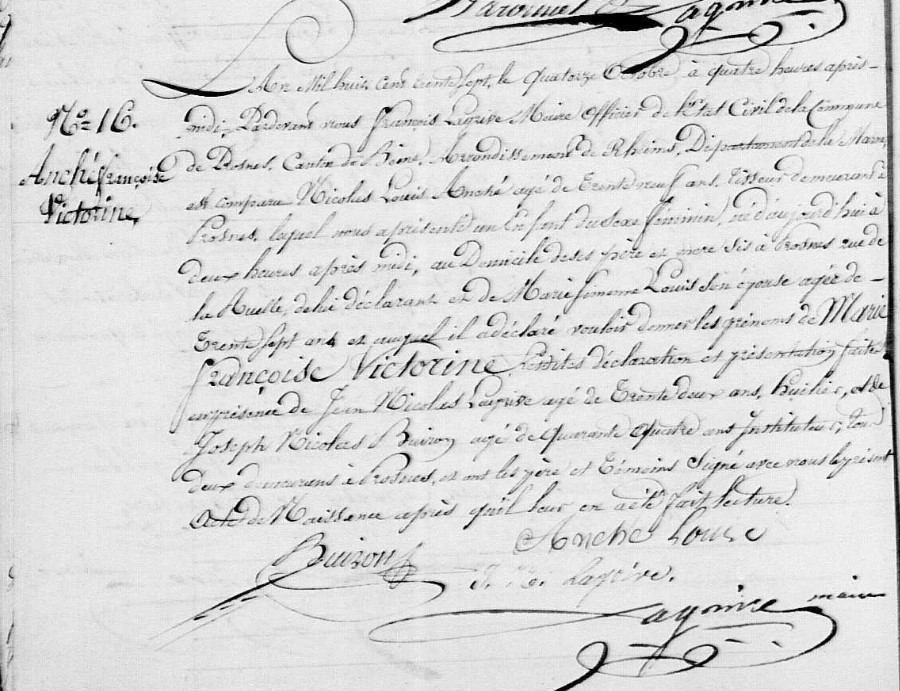 Lagrive
L'An Mil huit cent trente sept, le Quatorze Octobre à quatre heures après-
midi, Pardevant nous François Lagrive Maire Officier de l'Etat Civil de la Commune
N.o 16.
Anché françoise
Victorine
de Prosnes, Canton de Beine, Arrondissement de Rheims, Département de la Marne
est comparu Nicolas Louis Anché agé de Trente neuf ans, Tisseur demeurant à
Prosnes, lequel nous a présenté un Enfant du sexe féminin, né d'aujourd'hui à
deux heures après midi, au Domicile de ses père et mere sis à Prosnes rue de
la Ruelle, de lui déclarant et de Marie Simonne Louis son épouse agée de
Trente sept ans et auquel il a déclaré vouloir donner les prénoms de Marie
Françoise Victorine lesdites déclaration et présentation faite
en présence de Jean Nicolas agé de Trente deux ans, et de
Joseph Nicolas Buiron agé de Quarante Quatre ans Instituteur, tous
deux demeurans à Prosnes, et ont les père et Témoins Signé avec nous le présent
Acte de Naissence après qu'il leur en a été fait lecture.
Buiron
Anché Louis
J. N.
Lagrive maire